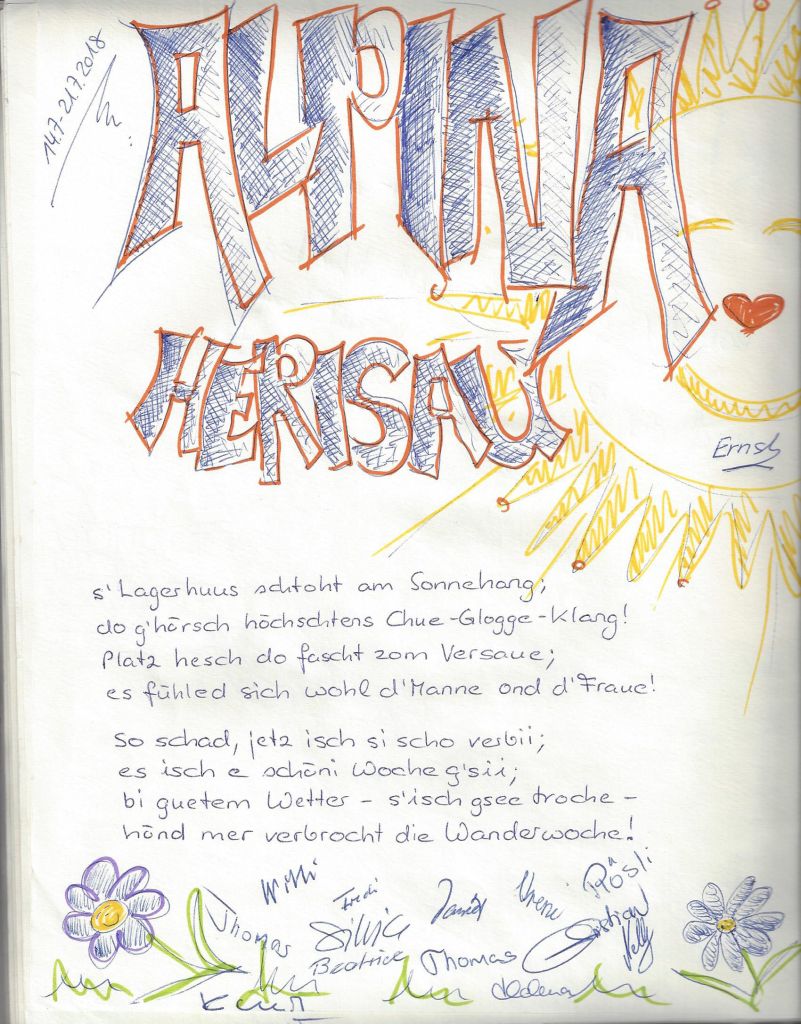 14.7-21.7.2018
ALPINA
HERISAU
Ernst
s'Lagerhuus schtoht am Sonnehang;
do g'hörsch höchschtens Chue-Glogge-Klang!
Platz hesch do fascht zom Versaue;
es fühled sich wohl d'Manne ond d'Fraue!
So schad, jetz isch si scho verbii;
es isch e schöni Woche g'sii;
bi guetem Wetter - s'isch gsee troche -
hönd mer verbrocht die Wanderwoche!
Willi
Fredi
Vreni
Rösli
Thomas
Silvia
Beatrice
Thomas
Nelly
Kurt